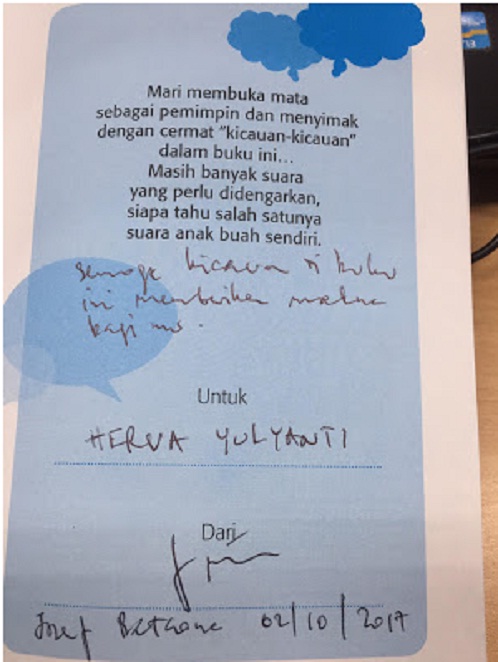 Mari membuka mata
sebagai pemimpin dan menyimak
dengan cermat "kicauan-kicauan"
dalam buku ini...
Masih banyak suara
yang perlu didengarkan,
siapa tahu salah satunya
suara anak buah sendiri.
semoga kicauan di buku
ini memberikan makna
bagi
Untuk
HERVA YULYANTI
Dari
Josef Bataona 02/10/2017